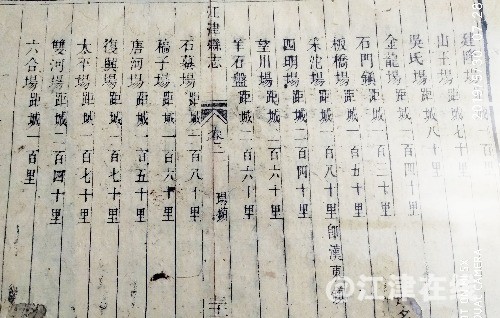 建隆場距城七十里
山王場距城八十里
吳氏場距城一百四十里
金龍場距城一百二十里
石門鎮距城一百五十里
板橋場距城一百八十里即漢東
朱沱場距城一百四十里
四明場距城一百六十里
望川場距城一百六十里
羊石盤距城二百六十里
江津縣志 卷二 場鎮
石蟇場距城一百八十里
稿子場距城一百六十里
唐河場距城一百五十里
復興場距城一百七十里
太平場距城一百七十里
雙河場距城一百四十里
六合場距城一百里
@江津在线